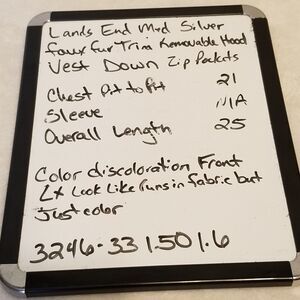 Lands End Med Silver
faux fur Trim Removable Hood
Vest Down Zip Pockets
Chest Pit to Pit 21
Sleeve N/A
Overall Length 25
Color discoloration Front
Lt Look Like runs in fabric but
Just color
3246-33 1.50 1.6